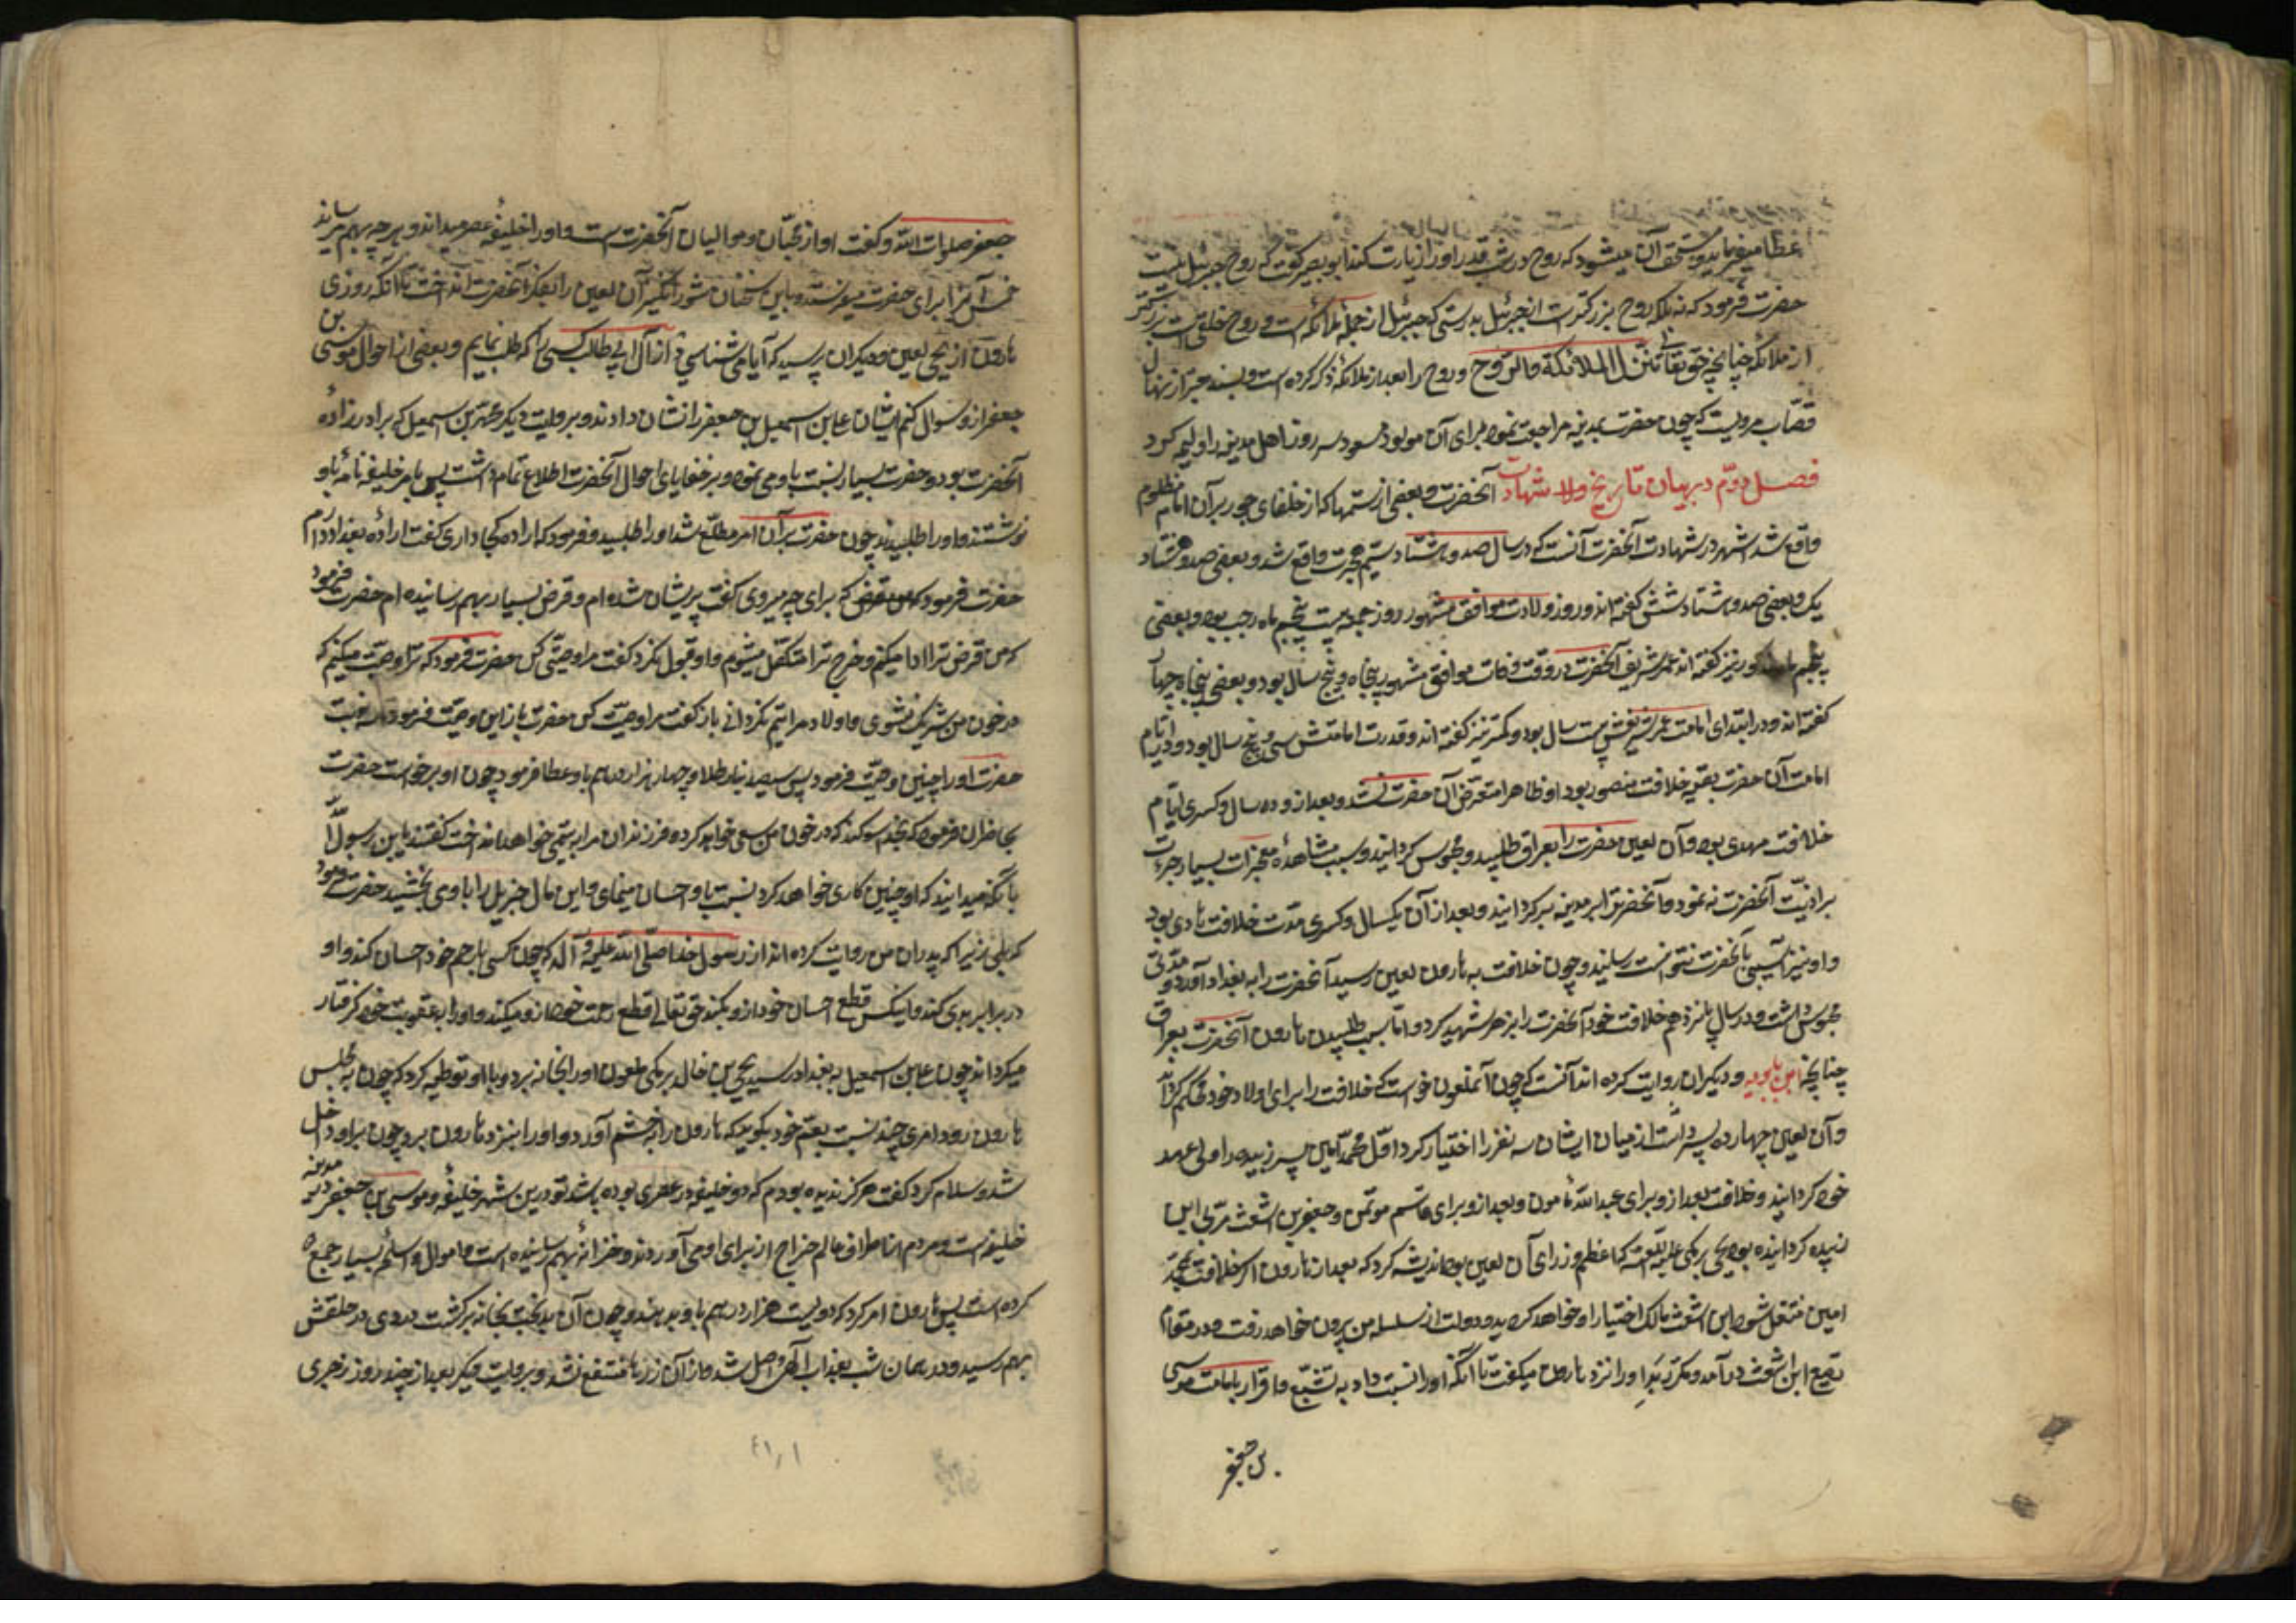 عطا میفرماید و مستحق آن میشود که روح در شب قدر او را زیارت کند ابو بصیر گفت که روح جبرئیل نیست
حضرت فرمود که نه بلکه روح بزرگترست از جبرئیل بدرستی که جبرئیل از جمله ملائکه است و روح خلقی است بزرگتر
از ملائکه چنانچه حق تعالی تنزل الملائکة والروح و روح را بعد از ملائکه ذکر کرده است و بسند معتبر از منهال
قصّاب مرویست که چون حضرت بمدینه مراجعت نمود برای آن مولود مسعود سه روز اهل مدینه را ولیمه کرد
فصل دوّم در بیان تاریخ ولا شهادت آنحضرت و بعضی از ستمها که از خلفای جور بر آن امام مظلوم
واقع شد اشهر در شهادت آنحضرت آنست که در سال صد و هشتاد سیّم هجرت واقع شد و بعضی صد و هشتاد
یک و بعضی صد و هشتاد شش گفته اند و روز ولادت موافق مشهور روز جمعه بیست پنجم ماه رجب بود و بعضی
پنجم نیز گفته اند عمر شریف آنحضرت در وقت وفات موافق مشهور پنجاه و پنج سال بود و بعضی پنجاه چهار
گفته اند و در ابتدای امامت عمر شریفش بیست سال بود و کمتر نیز گفته اند و قدرت امامتش سی و پنج سال بود و در ایام
امامت آن حضرت بقیه خلافت منصور بود او ظاهرا متعرض آن حضرت نشد و بعد از و ده سال و کسری ایّام
خلافت مهدی بود و آن لعین حضرت را بعراق طلبید و محبوس گردانید و بسبب مشاهده معجزات بسیار جرءت
بر اذیّت آنحضرت نه نمود و آنحضرترا بمدینه برگردانید و بعد از آن یکسال و کسری مدّت خلافت هادی بود
و او نیز آسیبی بآنحضرت نتوانست رسانید و چون خلافت به هارون لعین رسید آنحضرت را به بغداد آورد و مدّتی
محبوس داشت و در سال پانزدهم خلافت خود آنحضرت را بزهر شهید کرد و امّا سبب طلبیدن هارون آنحضرت بعراق
چنانچه ابن بابویه و دیگران روایت کرده اند آنست که چون آنملعون خواست که خلافت را برای اولاد خود محکم گرداند
و آن لعین چهارده پسر داشت از میان ایشان سه نفر را اختیار کرد اوّل محمّد امین پسر زبیده را ولی عهد
خود گردانید و خلافت بعد از و برای عبد الله مامون و بعد از و برای قاسم موتمن و جعفر بن اشعث مربّی ابن
زبیده گردانیده بود یحیی برمکی علیه اللعنه که اعظم وزرای آن لعین بود اندیشه کرد که بعد از هارون اگر خلافت بمحمّد
امین منتقل شود ابن اشعث مالک اختیار او خواهد گردید و دولت از سلسله من بیرون خواهد رفت و در مقام
تضییع ابن اشعث در آمد و مکرّر بد او را نزد هارون میگفت تا آنکه او را نسبت داد به تشیّع و اقرار بامامت موسی
بن جعفر
جعفر صلوات الله و گفت او از محبّان و موالیان آنحضرت است و او را خلیفه عصر میداند و هر چه بهم میرساند
خمس آنرا برای حضرت میفرستد و باین سخنان شورانگیز آن لعین را بفکر آنحضرت انداخت تا آنکه روزی
هارون از یحیی لعین و دیگران پرسید که آیا می شناسی از آل ابی طالب کسی را که طلب نمایم و بعضی از احوال موسی بن
جعفر از و سوال کنم ایشان علی بن اسمعیل بن جعفر را نشان دادند و بروایت دیگر محمّد بن اسمعیل که برادر زاده
آنحضرت بود و حضرت بسیار نسبت باو می نمود و بر خفایای احوال آنحضرت اطلاع تمام داشت پس بامر خلیفه نامه باو
نوشتند و او را طلبیدند چون حضرت بر آن امر مطلّع شد او را طلبید و فرمود که اراده کجا داری گفت اراده بغداد دارم
حضرت فرمود که برای چه میروی گفت پریشان شده ام و قرض بسیار بهم رسانیده ام حضرت فرمود
که من قرض ترا ادا میکنم و خرج ترا متکفّل میشوم و او قبول نکرد گفت مرا وصیّتی کن حضرت فرمود که ترا وصیّت میکنم که
در خون من شریک نشوی و اولاد مرا یتیم نگردانی باز گفت مرا وصیّت کن حضرت باز این وصیّت فرمود تا سه نوبت
حضرت او را چنین وصیّت فرمود پس سیصد دینار طلا و چهار هزار درهم باو عطا فرمود چون او برخواست حضرت
بحاضران فرمود که بخدا سوگند که در خون من سعی خواهد کرد و فرزندان مرا به یتیمی خواهد انداخت گفتند یا بن رسول اللّه
با آنکه میدانید که او چنین کاری خواهد کرد نسبت باو احسان مینمای و این مال جزیل را باو می بخشید حضرت فرمود
که بلی زیرا که پدران من روایت کرده اند از رسول خدا صلّی الله علیه و آله که چون کسی با رحم خود احسان کند و او
در برابر بدی کند و اینکس قطع احسان خود از و نکند حق تعالی قطع رحمت خود از و میکند و او را بعقوبت خود گرفتار
میگرداند چون علی بن اسمعیل به بغداد رسید یحیی بن خالد برمکی ملعون او را بخانه برد و با او توطیه کرد که چون به مجلس
هارون رود امری چند نسبت بعم خود بگوید که هارون را بخشم آورد و او را بنزد هارون برد چون بر او داخل
شد و سلام کرد گفت هرگز ندیده بودم که دو خلیفه در عصری بوده باشد تو درین شهر خلیفهٔ و موسی بن جعفر در مدینه
خلیفه است و مردم از اطراف عالم خراج از برای او می آوردند و خزانه بهم رسانیده است و اموال و اسلحه بسیار جمع
کرده است پس هارون امر کرد که دویست هزار درهم باو بدهند و چون آن بدبخت بخانه برگشت دردی در حلقش
بهم رسید و در همان شب بعذاب الهی واصل شد و از آن زرها منتفع نشد و بروایت دیگر بعد از چند روز زحیری